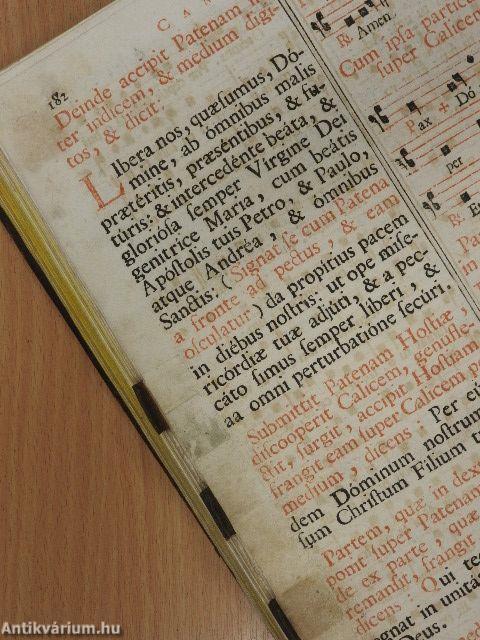 CA
182
Deinde accipit Patenam
ter indicem, & medium digi-
tos, & dicit:
LIbera nos, quæsumus, Dó-
mine, ab ómnibus malis
prætéritis, præséntibus, & fu-
túris: & intercedénte beáta, &
gloriósa semper Vírgine Dei
genitríce María, cum beátis
Apóstolis tuis Petro, & Paulo,
atque Andréa, & ómnibus
Sanctis. (Signat se cum Patena
a fronte ad pectus, & eam
osculatur) da propítius pacem
in diébus nostris: ut ope mise-
ricórdiæ tuæ adjúti, & a pec-
cáto simus semper líberi, &
aa omni perturbatióne secúri.
Submittit Patenam Hostiæ,
discooperit Calicem, genufle-
ctit, surgit, accipit Hostiam
frangit eam super Calicem p
medium, dicens: Per e
dem Dóminum nostrum
sum Christum Fílium t
Partem, quæ in dex
ponit super Patenam
de ex parte, quæ
remansit, frangit
dicens: Qui te
egnat in unitá
us.
℟. Amen.
Cum ipsa partic
super Calicem
Pax + Dó
per
℟. E
Antikvárium.hu
Antikvárium.hu